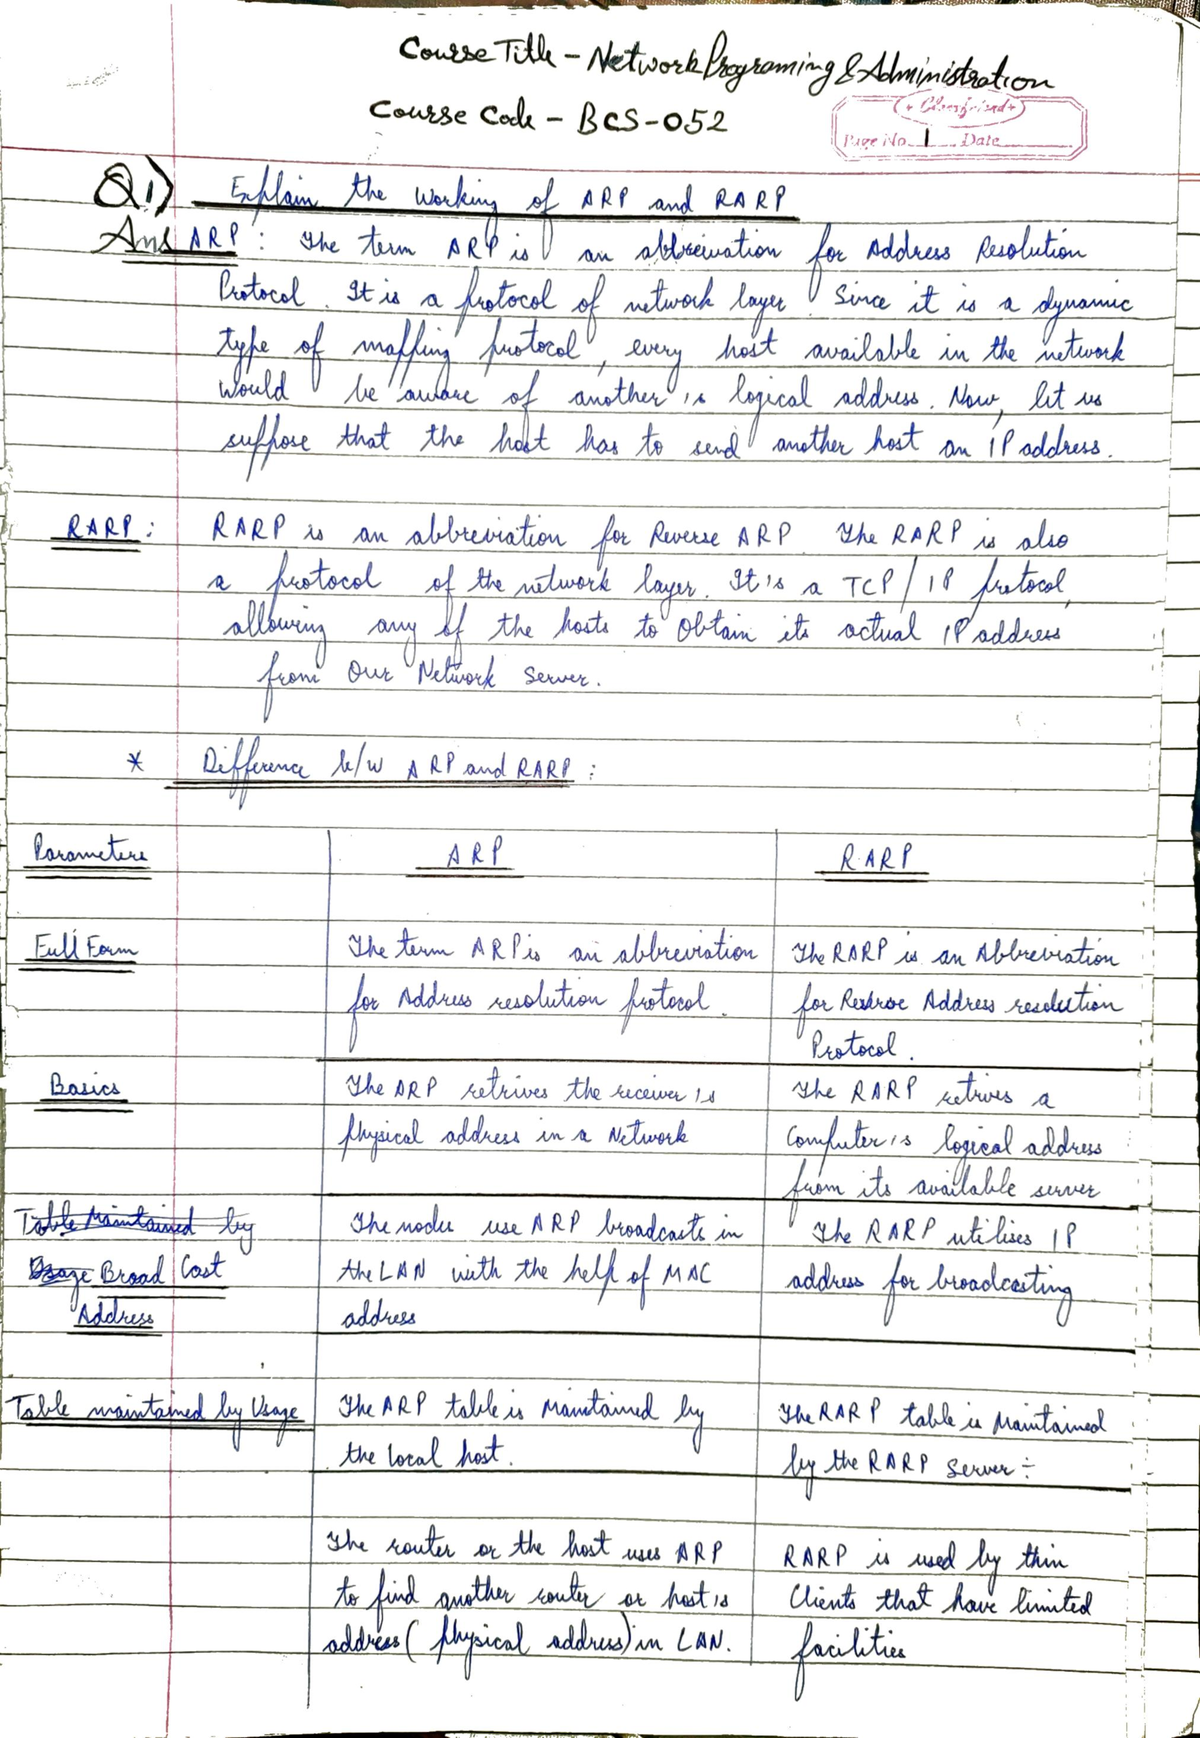 Course Title - Network Programing & Administration
Course Code - BCS-052
Classfriend
Page No. 1 Date
Q1) Explain the working of ARP and RARP
Ans ARP : The term ARP is an abbreivation for Address Resolution
Protocol. It is a protocol of network layer. Since it is a dynamic
type of mapping protocol, every host available in the network
would be aware of another's logical address. Now, let us
suppose that the host has to send another host an IP address.
RARP : RARP is an abbreviation for Reverse ARP. The RARP is also
a protocol of the network layer. It's a TCP/IP protocol,
allowing any of the hosts to obtain its actual IP address
from our Network Server.
* Difference b/w ARP and RARP :
Parameters ARP RARP
Full Form The term ARP is an abbreviation The RARP is an Abbreviation
for Address resolution protocol. for Reverse Address resolution
Protocol.
Basics The ARP retrives the receiver's The RARP retrives a
physical address in a Network Computer's logical address
from its available server
Table Maintained by The nodes use ARP broadcasts in The RARP utilises IP
Usage Broad Cast the LAN with the help of MAC address for broadcasting
Address address
Table maintained by Usage The ARP table is Maintained by The RARP table is Maintained
the local host. by the RARP Server :
The router or the host uses ARP RARP is used by thin
to find another router or host's Clients that have limited
address (physical address) in LAN. facilities